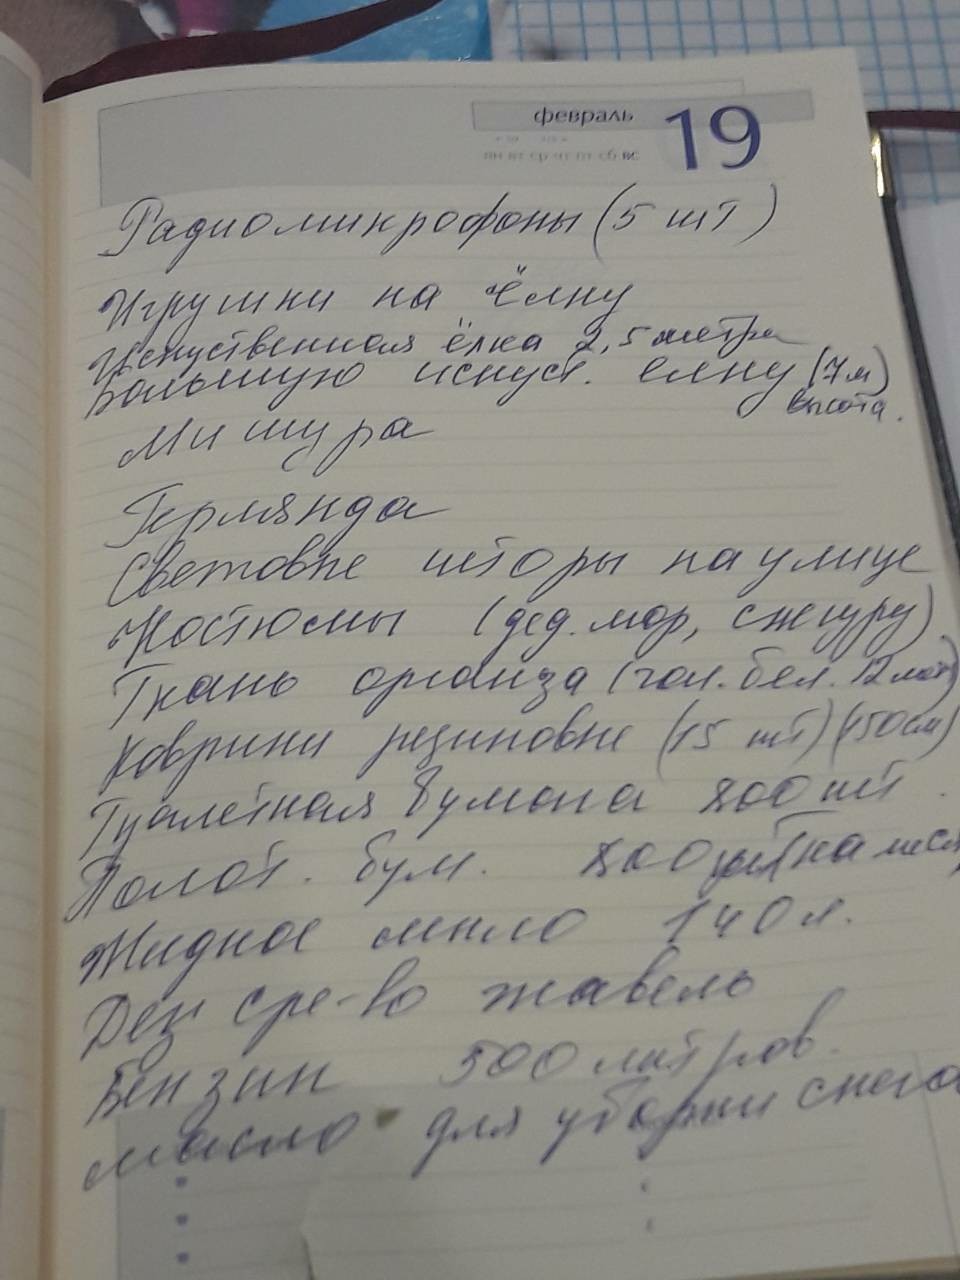 февраль 19
пн вт ср чт пт сб вс
Радиомикрофоны (5 шт)
Игрушки на ёлку
Искуственная ёлка 2,5 метра
Большую искуст. елку (7 м)
высота.
Мишура
Герлянда
Световые шторы на улице
Костюмы (дед. мор, снегуру)
Ткань органза (гол. бел. 12 мет)
Коврики резиновые (15 шт) (150см)
Туалетная бумага 800 шт.
Полот. бум. 800 шт на
Жидкое мыло 140 л.
Дез сре-во жавель
Бензин 500 литров.
масло для уборки снега